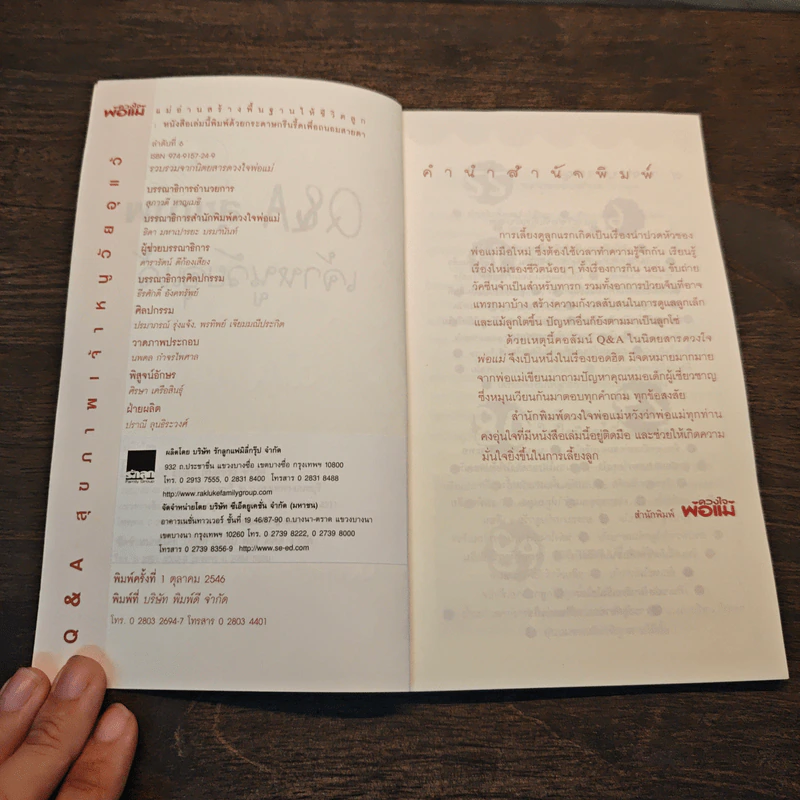 ดวงใจ
พ่อแม่
แม่อ่านสร้างพื้นฐานให้ชีวิตลูก
: หนังสือเล่มนี้พิมพ์ด้วยกระดาษกรีนรี้ดเพื่อถนอมสายตา
ลำดับที่ 8
ISBN 974-9157-24-9
รวบรวมจากนิตยสารดวงใจพ่อแม่
บรรณาธิการอำนวยการ
สุภาวดี หาญเมธี
บรรณาธิการสำนักพิมพ์ดวงใจพ่อแม่
ธิดา มหาเปารยะ บรมานันท์
ผู้ช่วยบรรณาธิการ
ดารารัตน์ ดีก้องเสียง
บรรณาธิการศิลปกรรม
ธีรศักดิ์ อังคทรัพย์
ศิลปกรรม
ปรมาภรณ์ รุ่งแจ้ง, พรทิพย์ เจียมมณีประกิต
วาดภาพประกอบ
นพดล กำจรไพศาล
พิสูจน์อักษร
ศิรษา เครือสินธุ์
ฝ่ายผลิต
ปราณี ลุนธิระวงศ์
รักลูก
Family Group
ผลิตโดย บริษัท รักลูกแฟมิลี่กรุ๊ป จำกัด
932 ถ.ประชาชื่น แขวงบางซื่อ เขตบางซื่อ กรุงเทพฯ 10800
โทร. 0 2913 7555, 0 2831 8400 โทรสาร 0 2831 8488
http://www.raklukefamilygroup.com
จัดจำหน่ายโดย บริษัท ซีเอ็ดยูเคชั่น จำกัด (มหาชน)
อาคารเนชั่นทาวเวอร์ ชั้นที่ 19 46/87-90 ถ.บางนา-ตราด แขวงบางนา
เขตบางนา กรุงเทพฯ 10260 โทร. 0 2739 8222, 0 2739 8000
โทรสาร 0 2739 8356-9 http://www.se-ed.com
พิมพ์ครั้งที่ 1 ตุลาคม 2546
พิมพ์ที่ บริษัท พิมพ์ดี จำกัด
โทร. 0 2803 2694-7 โทรสาร 0 2803 4401
Q & A สุขภาพเจ้าหนูวัยอุแว้
คำนำสำนักพิมพ์
การเลี้ยงดูลูกแรกเกิดเป็นเรื่องน่าปวดหัวของ
พ่อแม่มือใหม่ ซึ่งต้องใช้เวลาทำความรู้จักกัน เรียนรู้
เรื่องใหม่ของชีวิตน้อยๆ ทั้งเรื่องการกิน นอน ขับถ่าย
วัคซีนจำเป็นสำหรับทารก รวมทั้งอาการป่วยเจ็บที่อาจ
แทรกมาบ้าง สร้างความกังวลสับสนในการดูแลลูกเล็ก
และแม้ลูกโตขึ้น ปัญหาอื่นก็ยังตามมาเป็นลูกโซ่
ด้วยเหตุนี้คอลัมน์ Q&A ในนิตยสารดวงใจ
พ่อแม่ จึงเป็นหนึ่งในเรื่องยอดฮิต มีจดหมายมากมาย
จากพ่อแม่เขียนมาถามปัญหาคุณหมอเด็กผู้เชี่ยวชาญ
ซึ่งหมุนเวียนกันมาตอบทุกคำถาม ทุกข้อสงสัย
สำนักพิมพ์ดวงใจพ่อแม่หวังว่าพ่อแม่ทุกท่าน
คงอุ่นใจที่มีหนังสือเล่มนี้อยู่ติดมือ และช่วยให้เกิดความ
มั่นใจยิ่งขึ้นในการเลี้ยงลูก
สำนักพิมพ์ ดวงใจ
พ่อแม่